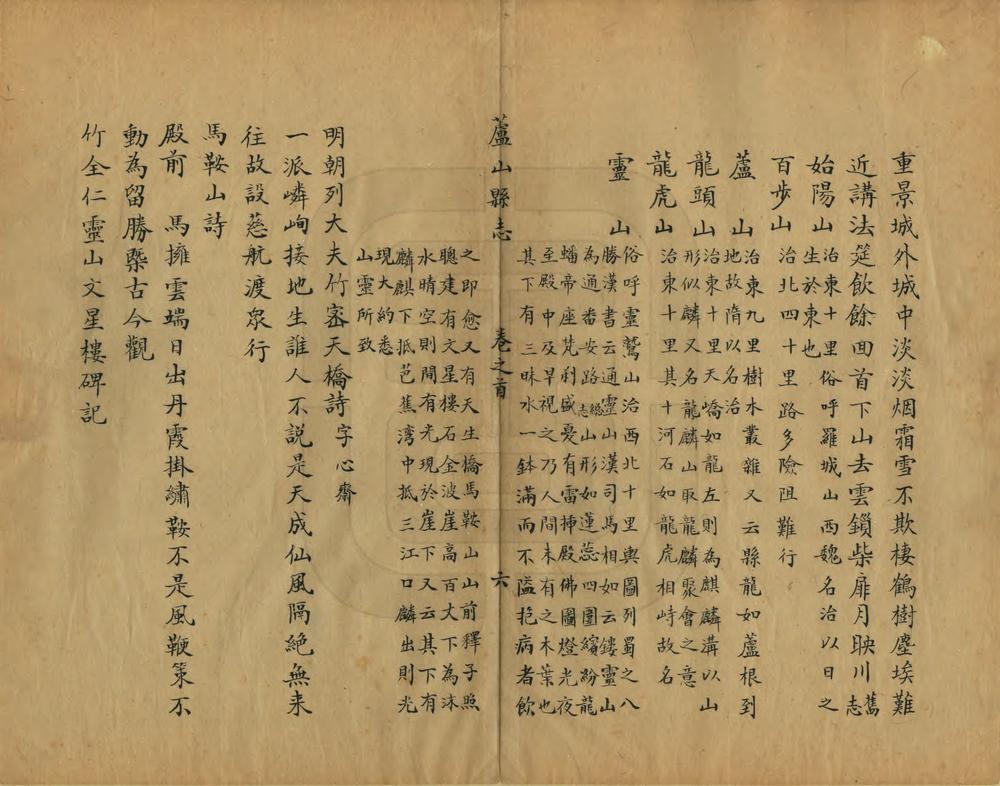 重景城外城中淡淡烟霜雪不欺棲鶴樹塵埃難
近講法筵飲餘回首下山去雲鎖柴扉月映川舊志
始陽山治東十里俗呼羅城山西魏名治以日之
生於東也
百步山治北四十里路多險阻難行
蘆山治東九里樹木叢雜又云縣龍如蘆根到
地故隋以名治
龍頭山治東十里天嶠如龍左則為麒麟溝以山
形似麟又名龍麟山取龍麟聚會之意
龍虎山治東十里其十河石如龍虎相峙故名
靈山俗呼靈鷲山治西北十里輿圖列蜀之八
勝漢書云通靈山漢司馬相如云鏤靈山
為通番安路總志山形如蓮蕊四圍繽紛龍
蟠帝座梵刹盛憂有雷揷殿佛圖燈光夜
至殿中及早視之乃人間未有之木葉也
其下有三昧水一鉢滿而不溢抱病者飲
蘆山縣志 卷之首 六
之即愈又有天生橋馬鞍山山前釋子照
聰建有文星樓石金波崖高百丈下為沐
水晴空則開有光現於崖下又云其下有
麟麒下抵芭蕉湾中抵三江口麟出則光
現大約悉
山靈所致
明朝列大夫竹密天橋詩字心齋
一派嶙峋接地生誰人不說是天成仙風隔絶無来
往故設慈航渡衆行
馬鞍山詩
殿前馬擁雲端日出丹霞掛繡鞍不是風鞭策不
動為留勝槩古今觀
竹全仁靈山文星樓碑記